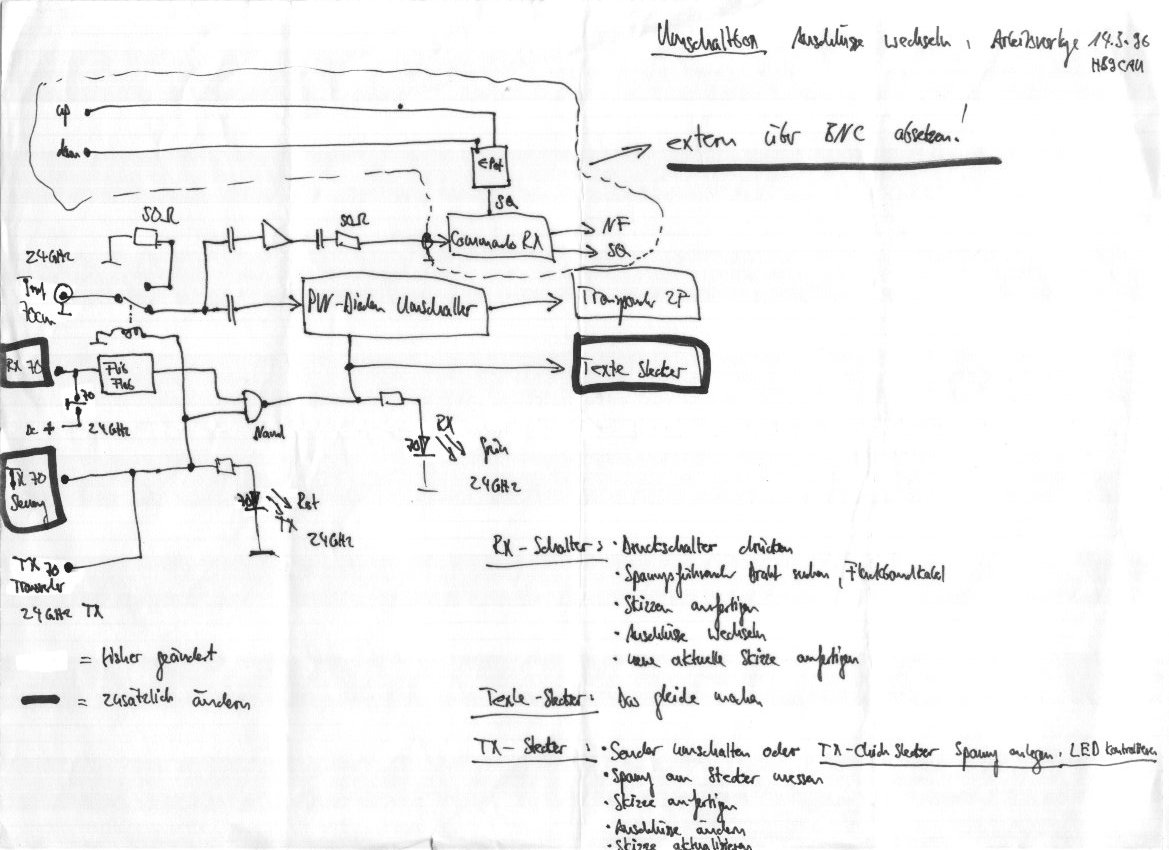 Umschaltbox Anschlüsse wechseln, Arbeitsvorlage 14.3.96
HB9CAU
up
down
extern über BNC absetzen!
EPot
SQ
50Ω
50Ω
NF
Commando RX
SQ
24GHz
70cm
PIN-Dioden Umschalter
Transponder ZF
RX 70
Flip
Flop
Texte Stecker
70
24GHz
Nand
RX
70
grün
24GHz
TX 70
70
Rot
TX
24GHz
RX-Schalter: · Druckschalter drücken
· Spanungsführender Draht suchen, Flachbandkabel
TX 70
Transverter
· Skizzen anfertigen
24GHz TX
· Anschlüsse wechseln
= bisher geändert
· neue aktuelle Skizze anfertigen
= zusätzlich ändern
Texte-Stecker: Das gleiche machen
TX-Stecker: · Sender umschalten oder TX-Cinch Stecker Spanung anlegen, LED kontrollieren
· Spanung am Stecker messen
· Skizze anfertigen
· Anschlüsse ändern
· Skizze aktualisieren